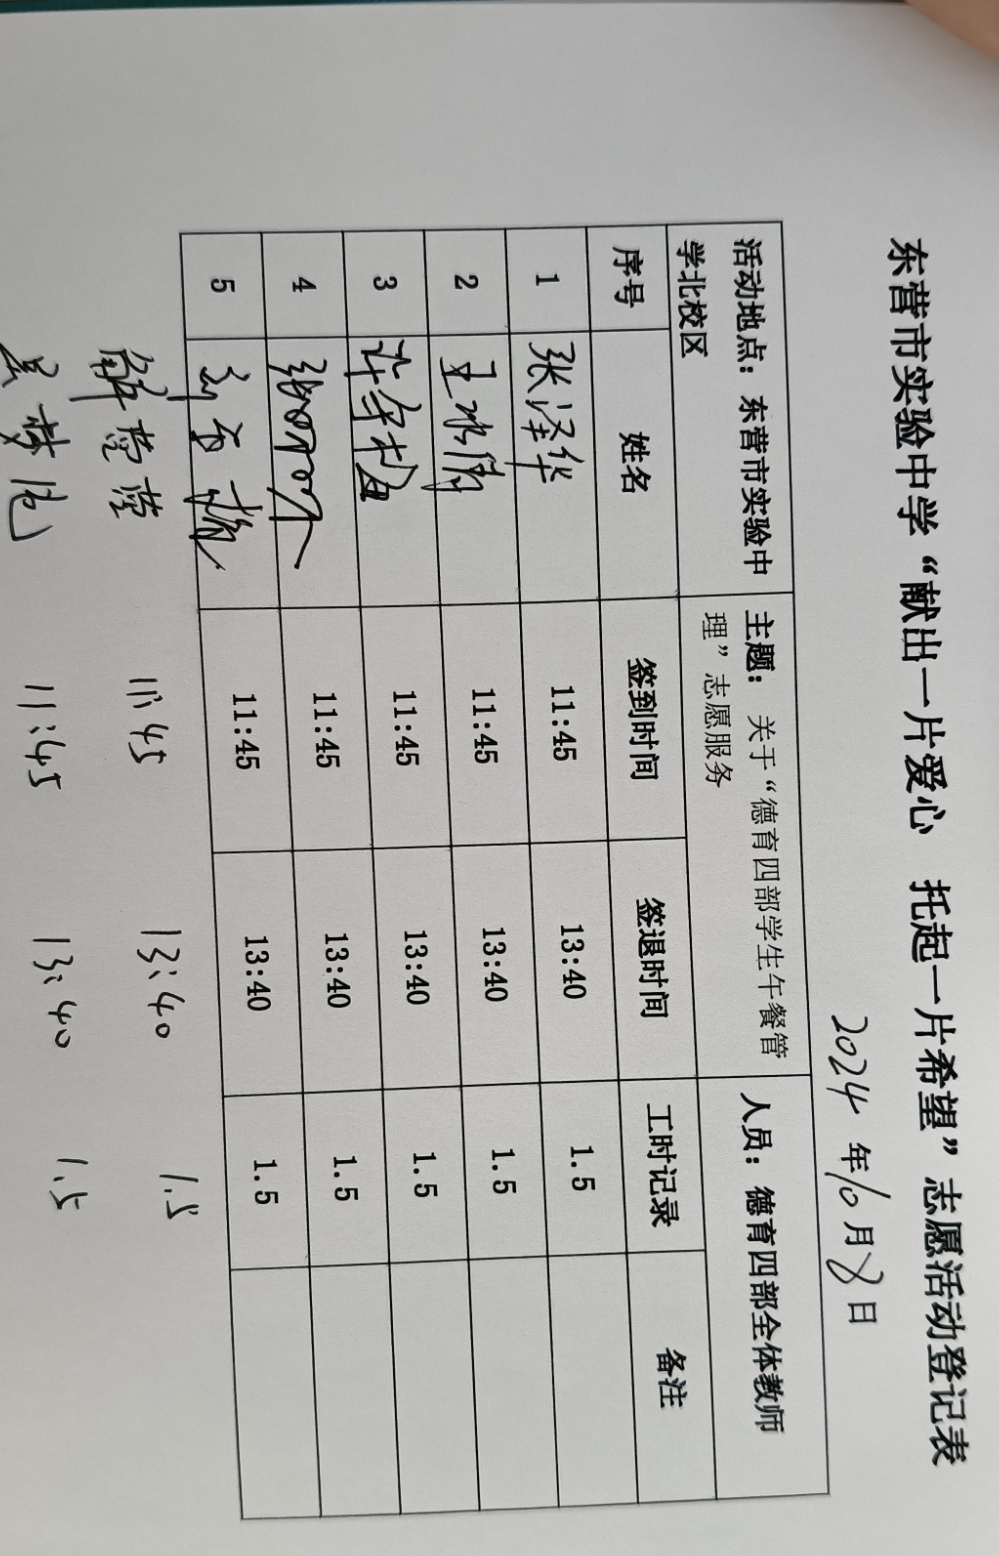 东营市实验中学“献出一片爱心 托起一片希望”志愿活动登记表
2024 年10月8日
活动地点：东营市实验中学北校区 主题： 关于“德育四部学生午餐管理”志愿服务 人员：德育四部全体教师
序号 姓名 签到时间 签退时间 工时记录 备注
1 张泽华 11:45 13:40 1.5
2 11:45 13:40 1.5
3 11:45 13:40 1.5
4 11:45 13:40 1.5
5 11:45 13:40 1.5
解莹莹 11:45 13:40 1.5
11:45 13:40 1.5